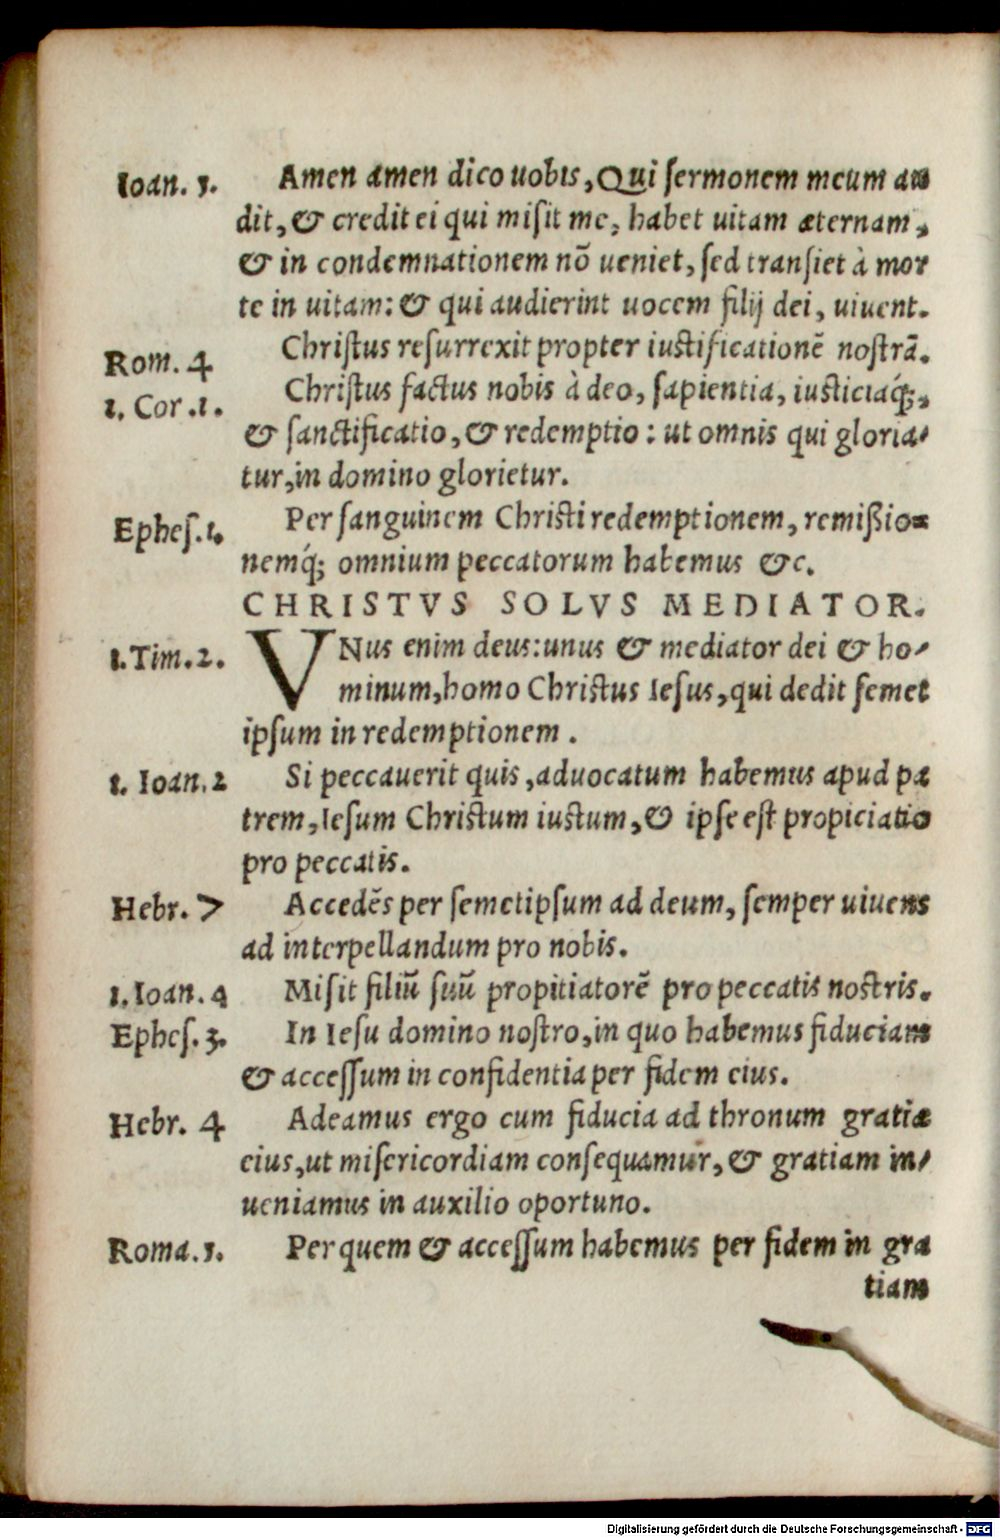 Ioan. 5. Amen amen dico uobis, Qui sermonem meum au
dit, & credit ei qui misit me, habet uitam æternam,
& in condemnationem nõ ueniet, sed transiet à mor
te in uitam: & qui audierint uocem filij dei, uiuent.
Rom. 4 Christus resurrexit propter iustificationẽ nostrã.
1. Cor .1. Christus factus nobis à deo, sapientia, iusticiaq́;,
& sanctificatio, & redemptio: ut omnis qui gloria-
tur, in domino glorietur.
Ephes. 1. Per sanguinem Christi redemptionem, remißio=
nemq́; omnium peccatorum habemus &c.
CHRISTVS SOLVS MEDIATOR.
1. Tim. 2. VNus enim deus: unus & mediator dei & ho-
minum, homo Christus Iesus, qui dedit semet
ipsum in redemptionem .
1. Ioan. 2 Si peccauerit quis, aduocatum habemus apud pa
trem, Iesum Christum iustum, & ipse est propiciatio
pro peccatis.
Hebr. 7 Accedẽs per semetipsum ad deum, semper uiuens
ad interpellandum pro nobis.
1. Ioan. 4 Misit filiũ suũ propitiatorẽ pro peccatis nostris.
Ephes. 3. In Iesu domino nostro, in quo habemus fiduciam
& accessum in confidentia per fidem eius.
Hebr. 4 Adeamus ergo cum fiducia ad thronum gratiæ
eius, ut misericordiam consequamur, & gratiam in-
ueniamus in auxilio oportuno.
Roma. 5. Per quem & accessum habemus per fidem in gra
tiam
Digitalisierung gefördert durch die Deutsche Forschungsgemeinschaft - DFG